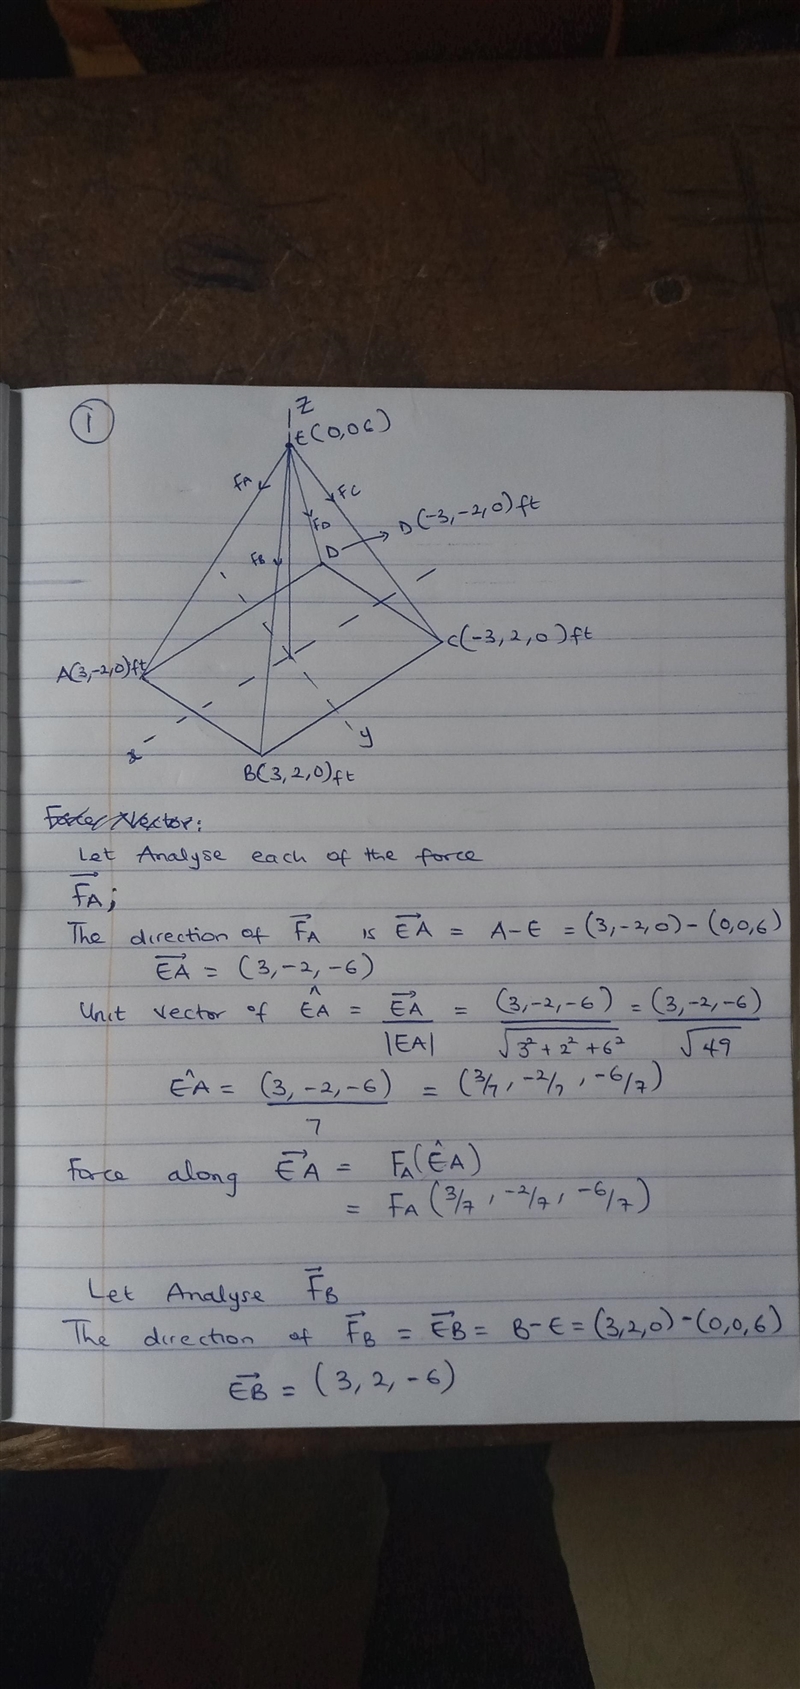 1
Z
E(0,06)
FA
FC
FD
D
D(-3,-2,0)ft
FB
C(-3,2,0)ft
A(3,-2,0)ft
x
y
B(3,2,0)ft
Let Analyse each of the force
F⃗A;
The direction of F⃗A is E⃗A = A-E = (3,-2,0)-(0,0,6)
E⃗A = (3,-2,-6)
Unit vector of ÊA = E⃗A/|EA| = (3,-2,-6)/√3²+2²+6² = (3,-2,-6)/√49
ÊA = (3,-2,-6)/7 = (3/7, -2/7, -6/7)
Force along E⃗A = FA(ÊA)
= FA(3/7, -2/7, -6/7)
Let Analyse F⃗B
The direction of F⃗B = E⃗B = B-E = (3,2,0)-(0,0,6)
E⃗B = (3,2,-6)